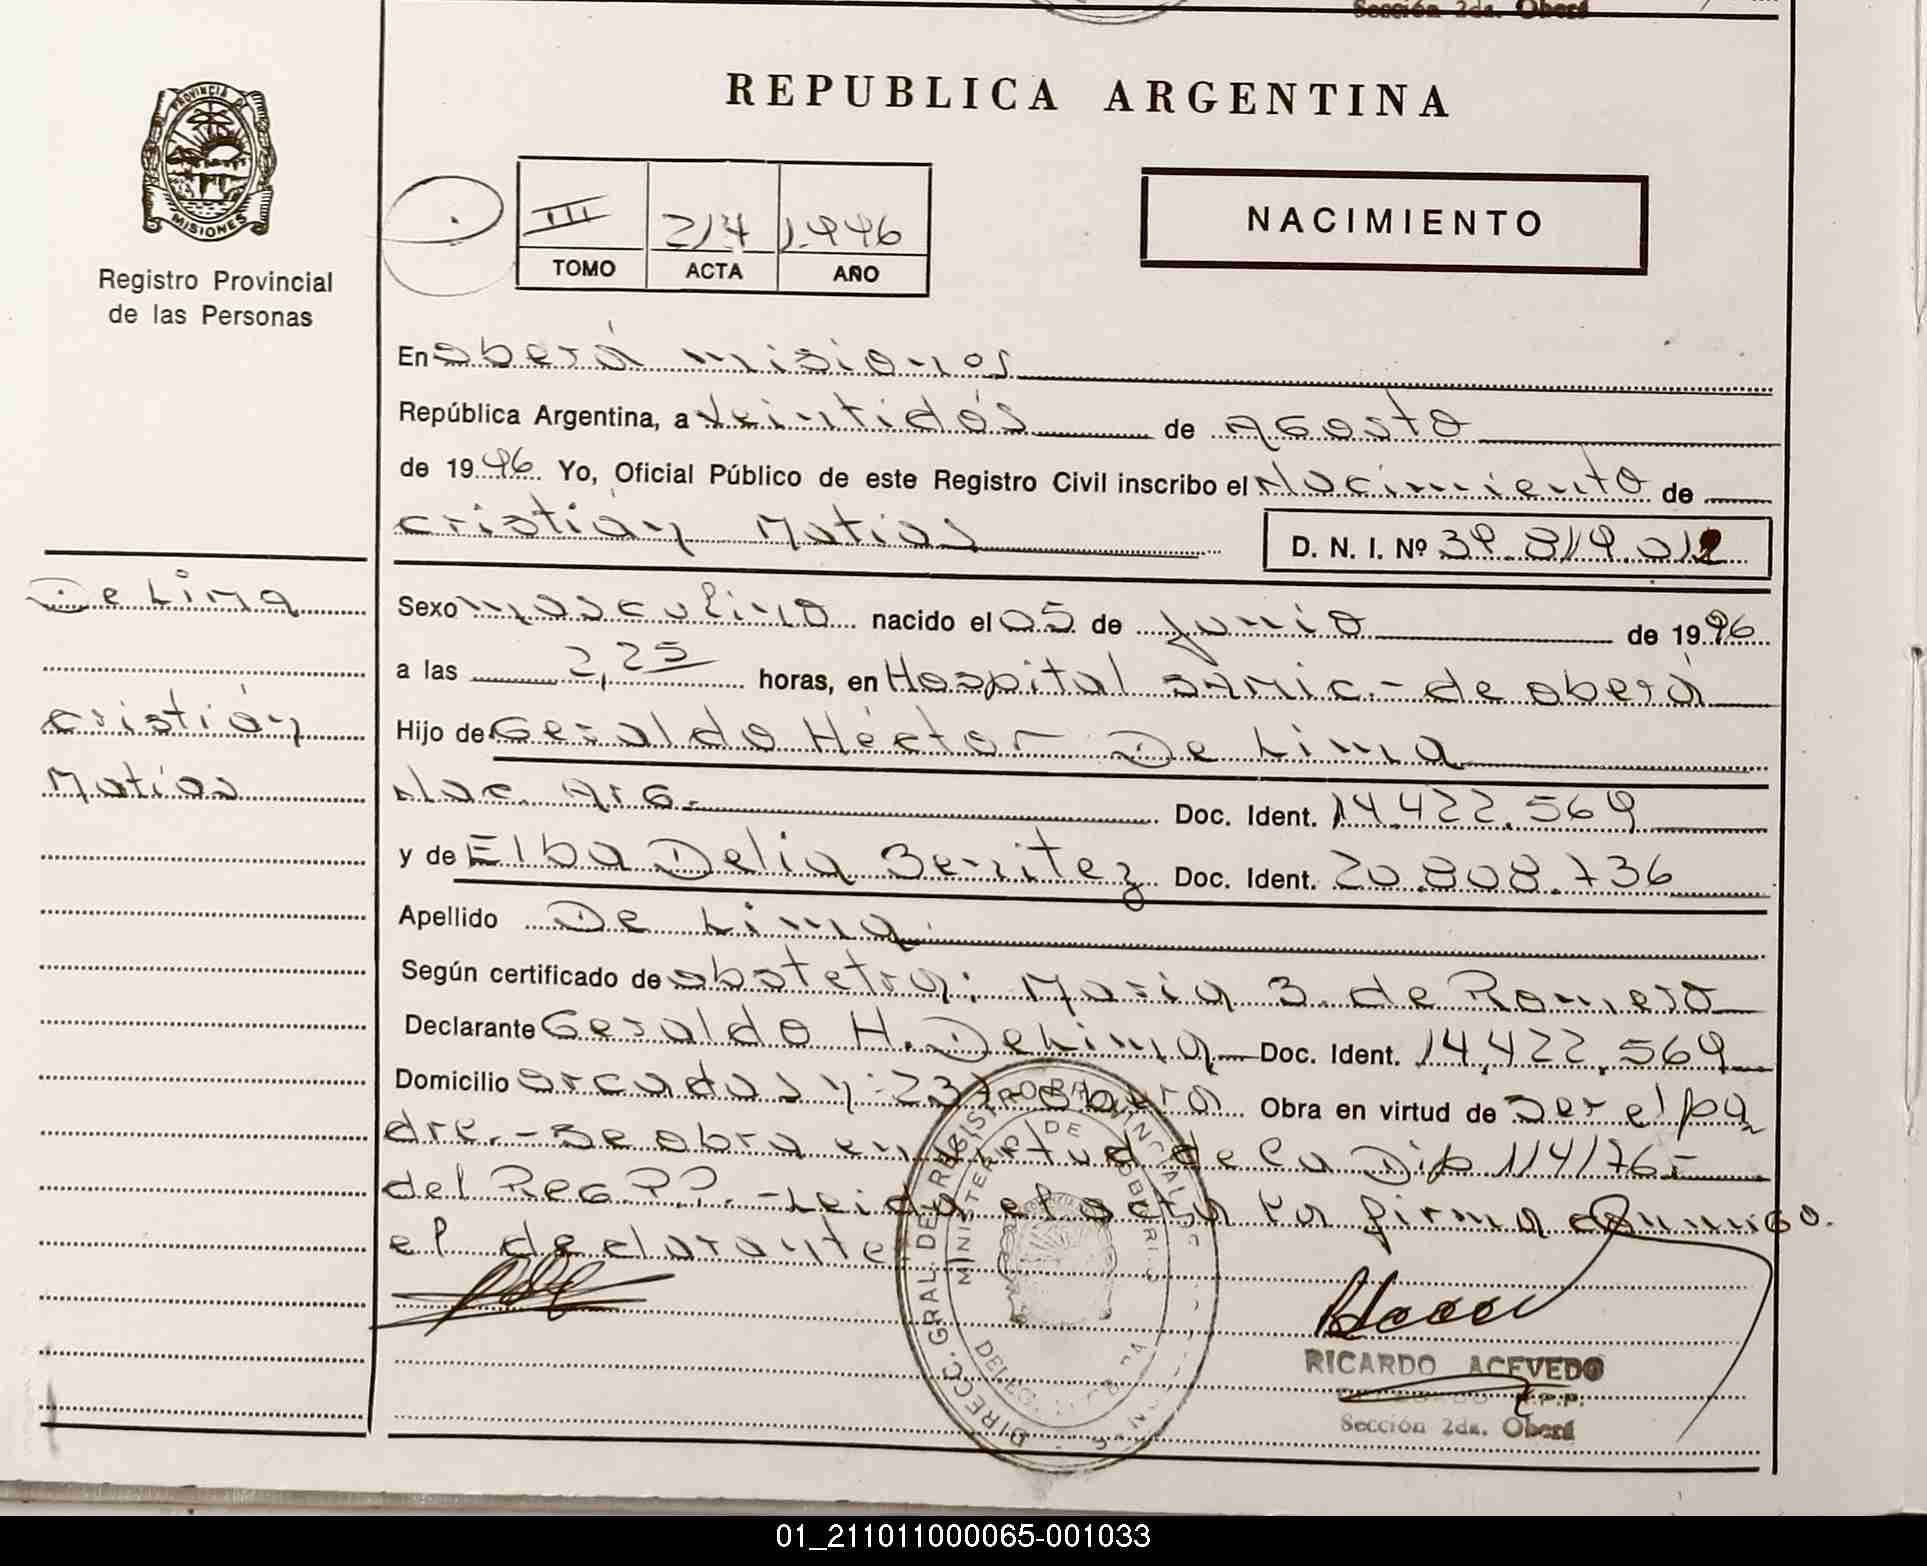 Sección 2da. Oberá
REPUBLICA ARGENTINA
PROVINCIA DE
MISIONES
Registro Provincial
de las Personas
III 214 1.996
TOMO ACTA AÑO
NACIMIENTO
En oberá misiones
República Argentina, a Veintidós de Agosto
de 1996. Yo, Oficial Público de este Registro Civil inscribo el Nacimiento de
cristián Matias D. N. I. Nº 39.819.012
De Lima
cristián
Matias
Sexo masculino nacido el 05 de junio de 1996
a las 2,25 horas, en Hospital SAMIC.- de oberá
Hijo de Geraldo Héctor De Lima
Nac. Arg. Doc. Ident. 14.422.569
y de Elba Delia Benitez Doc. Ident. 20.808.736
Apellido De Lima
Según certificado de obstetra: Maria B. de Romero
Declarante Geraldo H. De Lima Doc. Ident. 14.422.569
Domicilio Obra en virtud de ser el pa
dre.- Se obra en virtud de la Dip 114/76.-
del Reg P.P. - Leida el acta la firma conmigo.
el declarante
DIRECC. GRAL. DEL REGISTRO PROVINCIAL
MINISTERIO DE GOBIERNO
RICARDO ACEVEDO
R.P.P.
Sección 2da. Oberá
01_211011000065-001033